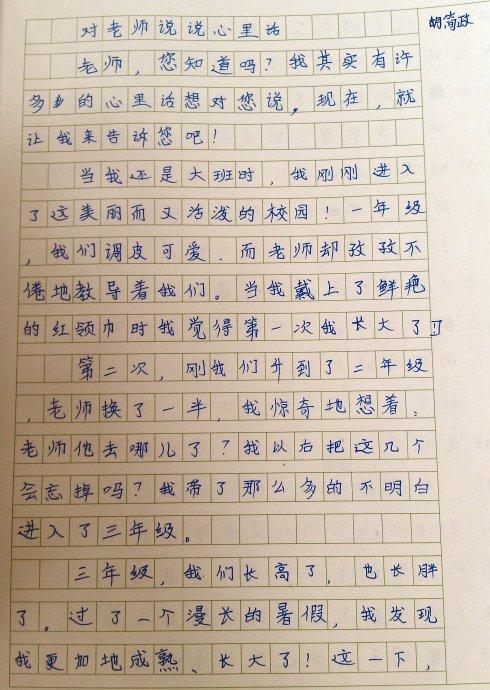 对老师说说心里话
胡简政
老师，您知道吗？我其实有许
多的心里话想对您说。现在，就
让我来告诉您吧！
当我还是大班时，我刚刚进入
了这美丽而又活泼的校园！一年级
，我们调皮可爱．而老师却孜孜不
倦地教导着我们。当我戴上了鲜艳
的红领巾时我觉得第一次我长大了!!
第二次，刚我们升到了二年级
，老师换了一半，我惊奇地想着：
老师他去哪儿了？我以后把这几个
会忘掉吗？我带了那么多的不明白
进入了三年级。
三年级，我们长高了，也长胖
了。过了一个漫长的暑假，我发现
我更加地成熟、长大了！这一下，